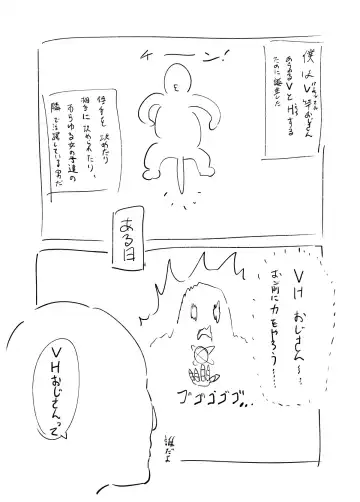 僕はV竿おじさん
あらゆるVとHする
ために誕生した
ケーン!
相手を攻めたり
相手に攻められたり、
あらゆる女の子達の
隣で活躍している男だ
ある日
VHおじさん〜…
お前に力をやろう……
ゴゴゴゴゴ…
誰だよ
VHおじさんって